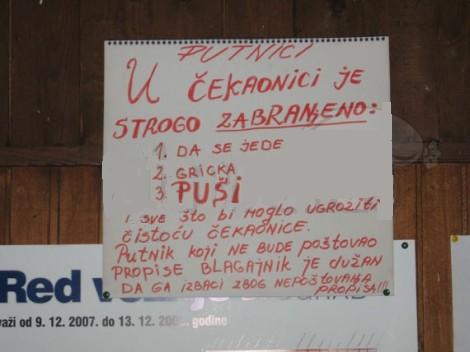 PUTNICI
U ČEKAONICI JE
STROGO ZABRANJENO:
1. DA SE JEDE
2. GRICKA
3. PUŠI
I SVE ŠTO BI MOGLO UGROZITI
ČISTOĆU ČEKAONICE.
PUTNIK KOJI NE BUDE POŠTOVAO
PROPISE BLAGAJNIK JE DUŽAN
DA GA IZBACI ZBOG NEPOŠTOVANJA
PROPISA!!!
Red
važi od 9. 12. 2007. do 13. 12. godine